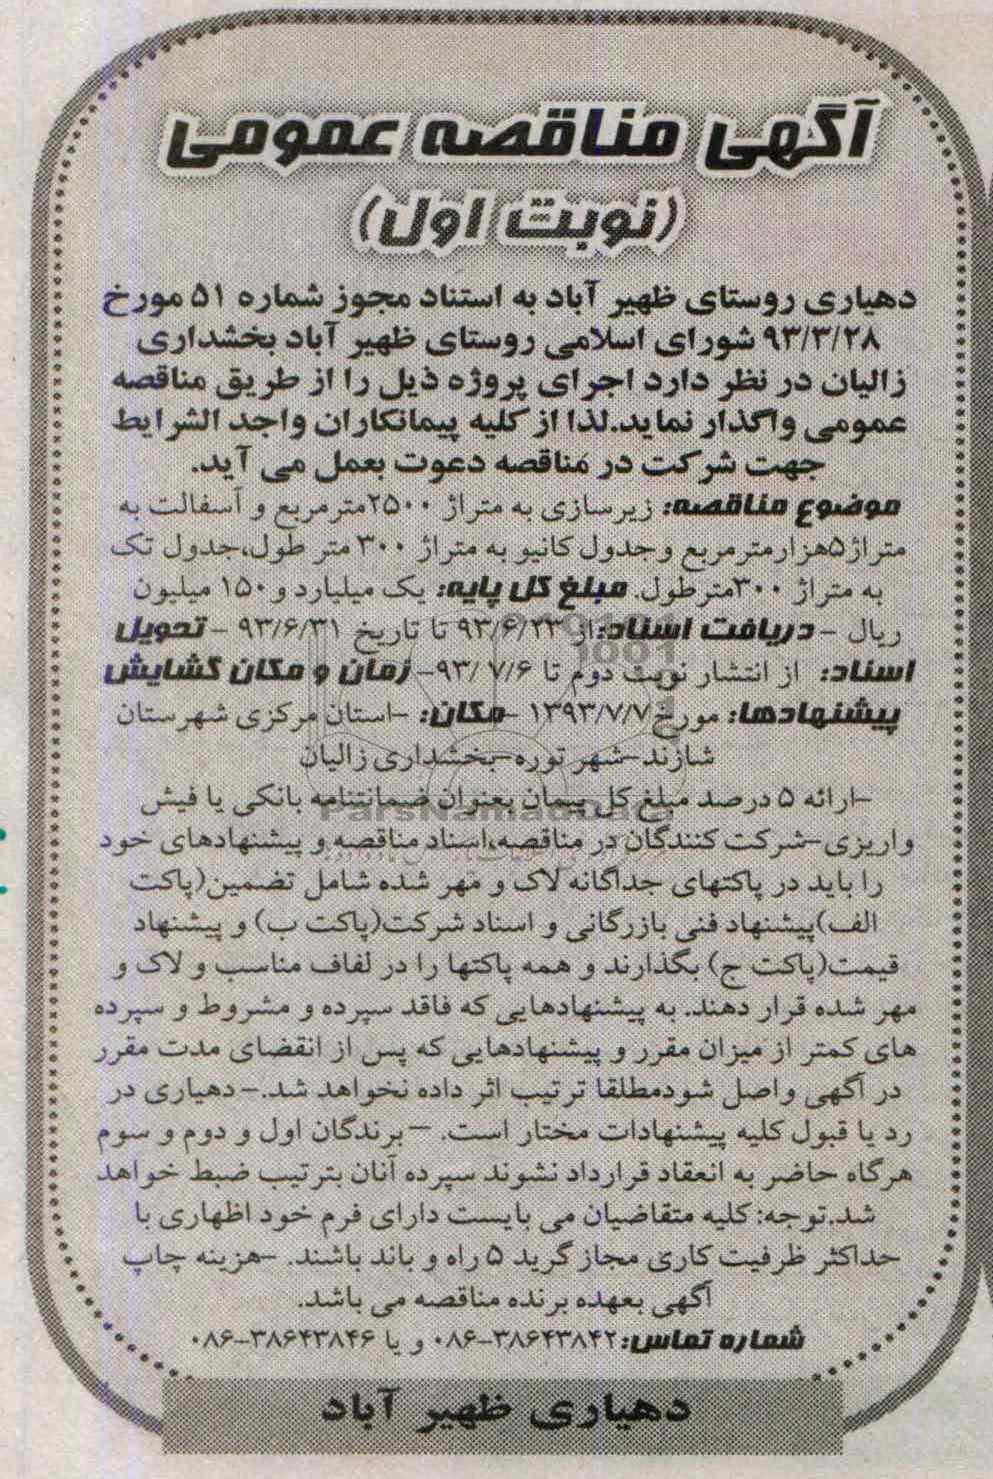 آگهی مناقصه عمومی
(نوبت اول)
دهیاری روستای ظهیر آباد به استناد مجوز شماره ۵۱ مورخ
۹۳/۳/۲۸ شورای اسلامی روستای ظهیر آباد بخشداری
زالیان در نظر دارد اجرای پروژه ذیل را از طریق مناقصه
عمومی واگذار نماید.لذا از کلیه پیمانکاران واجد الشرایط
جهت شرکت در مناقصه دعوت بعمل می آید.
موضوع مناقصه: زیرسازی به متراژ ۲۵۰۰مترمربع و آسفالت به
متراژ۵هزارمترمربع و جدول کانیو به متراژ ۳۰۰ متر طول،جدول تک
به متراژ ۳۰۰مترطول. مبلغ کل پایه: یک میلیارد و ۱۵۰ میلیون
ریال - دریافت اسناد:از ۹۳/۶/۲۳ تا تاریخ ۹۳/۶/۳۱ - تحویل
اسناد: از انتشار نوبت دوم تا ۹۳/۷/۶- زمان و مکان گشایش
پیشنهادها: مورخ۱۳۹۳/۷/۷ -مکان: -استان مرکزی شهرستان
شازند-شهر توره-بخشداری زالیان
-ارائه ۵ درصد مبلغ کل پیمان بعنوان ضمانتنامه بانکی یا فیش
واریزی-شرکت کنندگان در مناقصه،اسناد مناقصه و پیشنهادهای خود
را باید در پاکتهای جداگانه لاک و مهر شده شامل تضمین(پاکت
الف)پیشنهاد فنی بازرگانی و اسناد شرکت(پاکت ب) و پیشنهاد
قیمت(پاکت ج) بگذارند و همه پاکتها را در لفاف مناسب و لاک و
مهر شده قرار دهند. به پیشنهادهایی که فاقد سپرده و مشروط و سپرده
های کمتر از میزان مقرر و پیشنهادهایی که پس از انقضای مدت مقرر
در آگهی واصل شودمطلقا ترتیب اثر داده نخواهد شد.- دهیاری در
رد یا قبول کلیه پیشنهادات مختار است. - برندگان اول و دوم و سوم
هرگاه حاضر به انعقاد قرارداد نشوند سپرده آنان بترتیب ضبط خواهد
شد.توجه: کلیه متقاضیان می بایست دارای فرم خود اظهاری با
حداکثر ظرفیت کاری مجاز گرید ۵ راه و باند باشند. -هزینه چاپ
آگهی بعهده برنده مناقصه می باشد.
شماره تماس:۳۸۶۴۳۸۴۲-۰۸۶ و یا ۳۸۶۴۳۸۴۶-۰۸۶
دهیاری ظهیر آباد
ParsNamadData